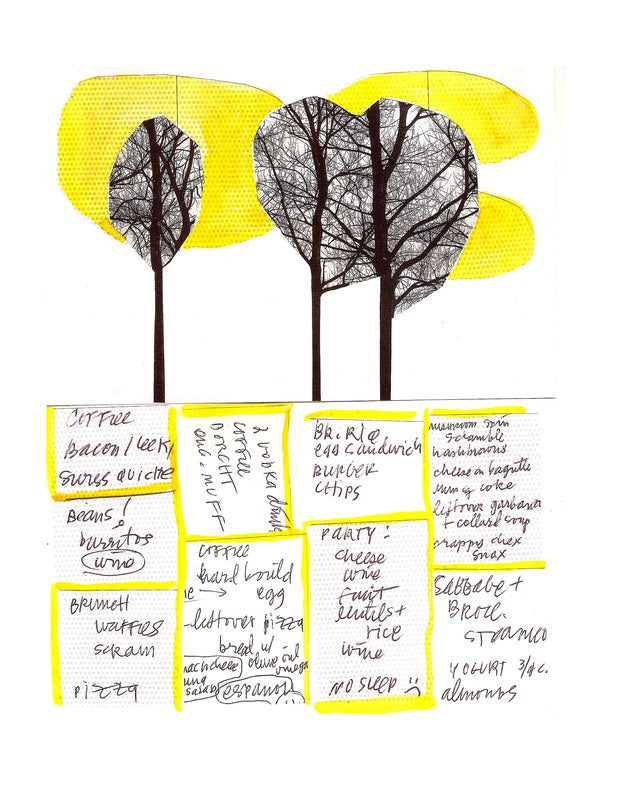 COFFEE
Bacon/leek/
swiss quiche
Beans!
burritos
wine
BRUNCH
waffles
scram
pizza
2 vodka drinks
COFFEE
ENG. MUFF
COFFEE
hard boiled
egg
leftover pizza
bread w/
olive oil
mach cheese
salad
espanol
egg sandwich
BURGER
CHIPS
PARTY!
cheese
wine
fruit
lentils +
rice
wine
NO SLEEP
mushroom
scramble
hashbrowns
cheese on baguette
coke
leftover garbanzo
+ collard soup
crappy chex
snax
+
BROCC.
STEAMED
YOGURT 3/4 C.
almonds